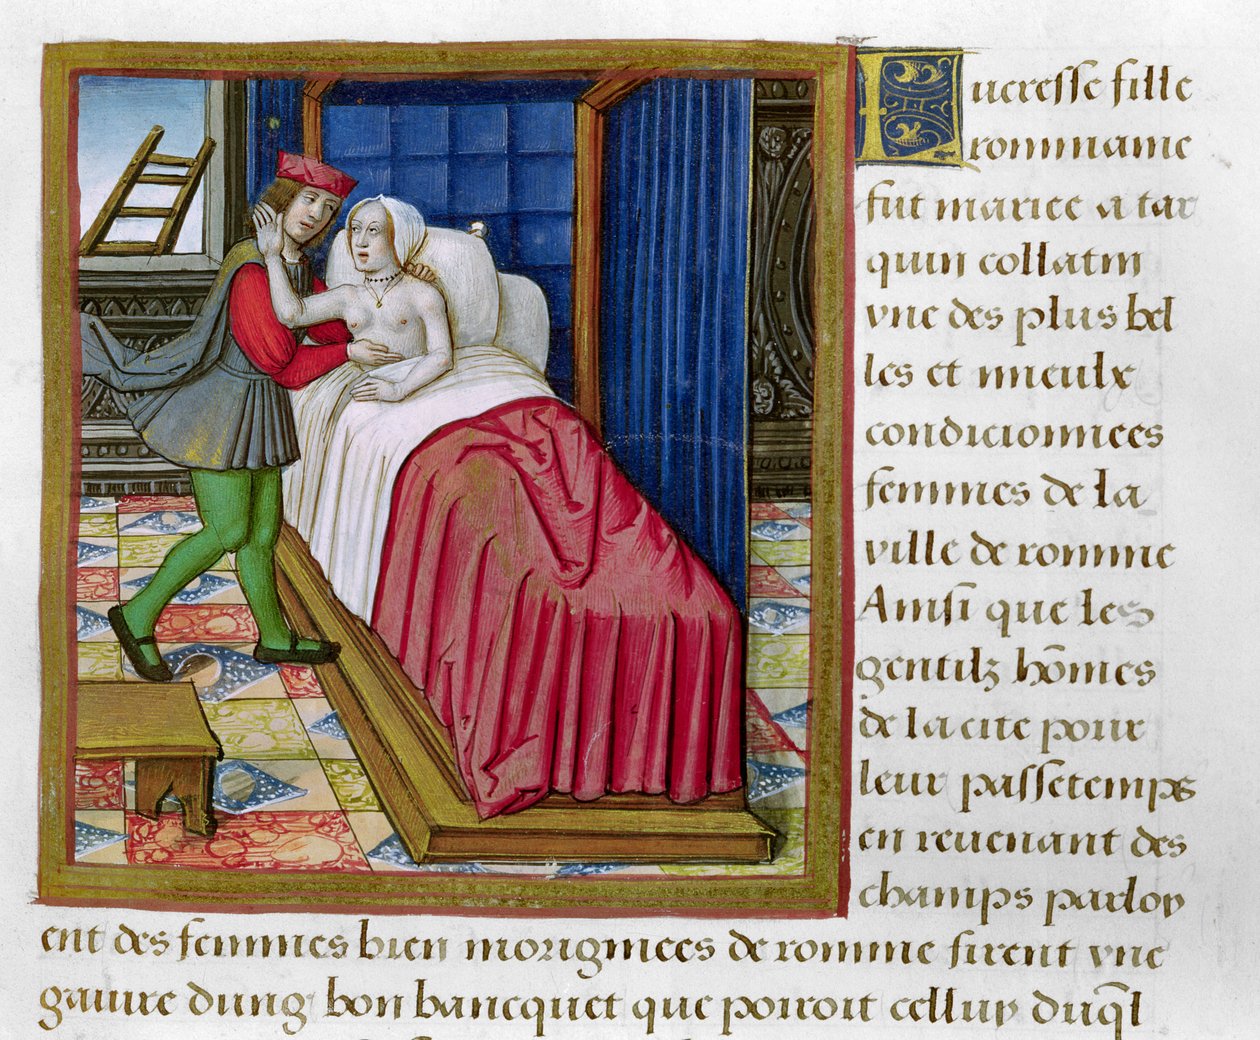 Lucresse fille
rommame
fut mariee a tar
quin collatin
vne des plus bel
les et mieulx
condicionnees
femmes de la
ville de romme
Ainsi que les
gentilz hōmes
de la cite pour
leur passetemps
en reuenant des
champs parloy
ent des femmes bien moriginees de romme firent vne
gauure dung bon bancquet que poiroit celluy duq̄l